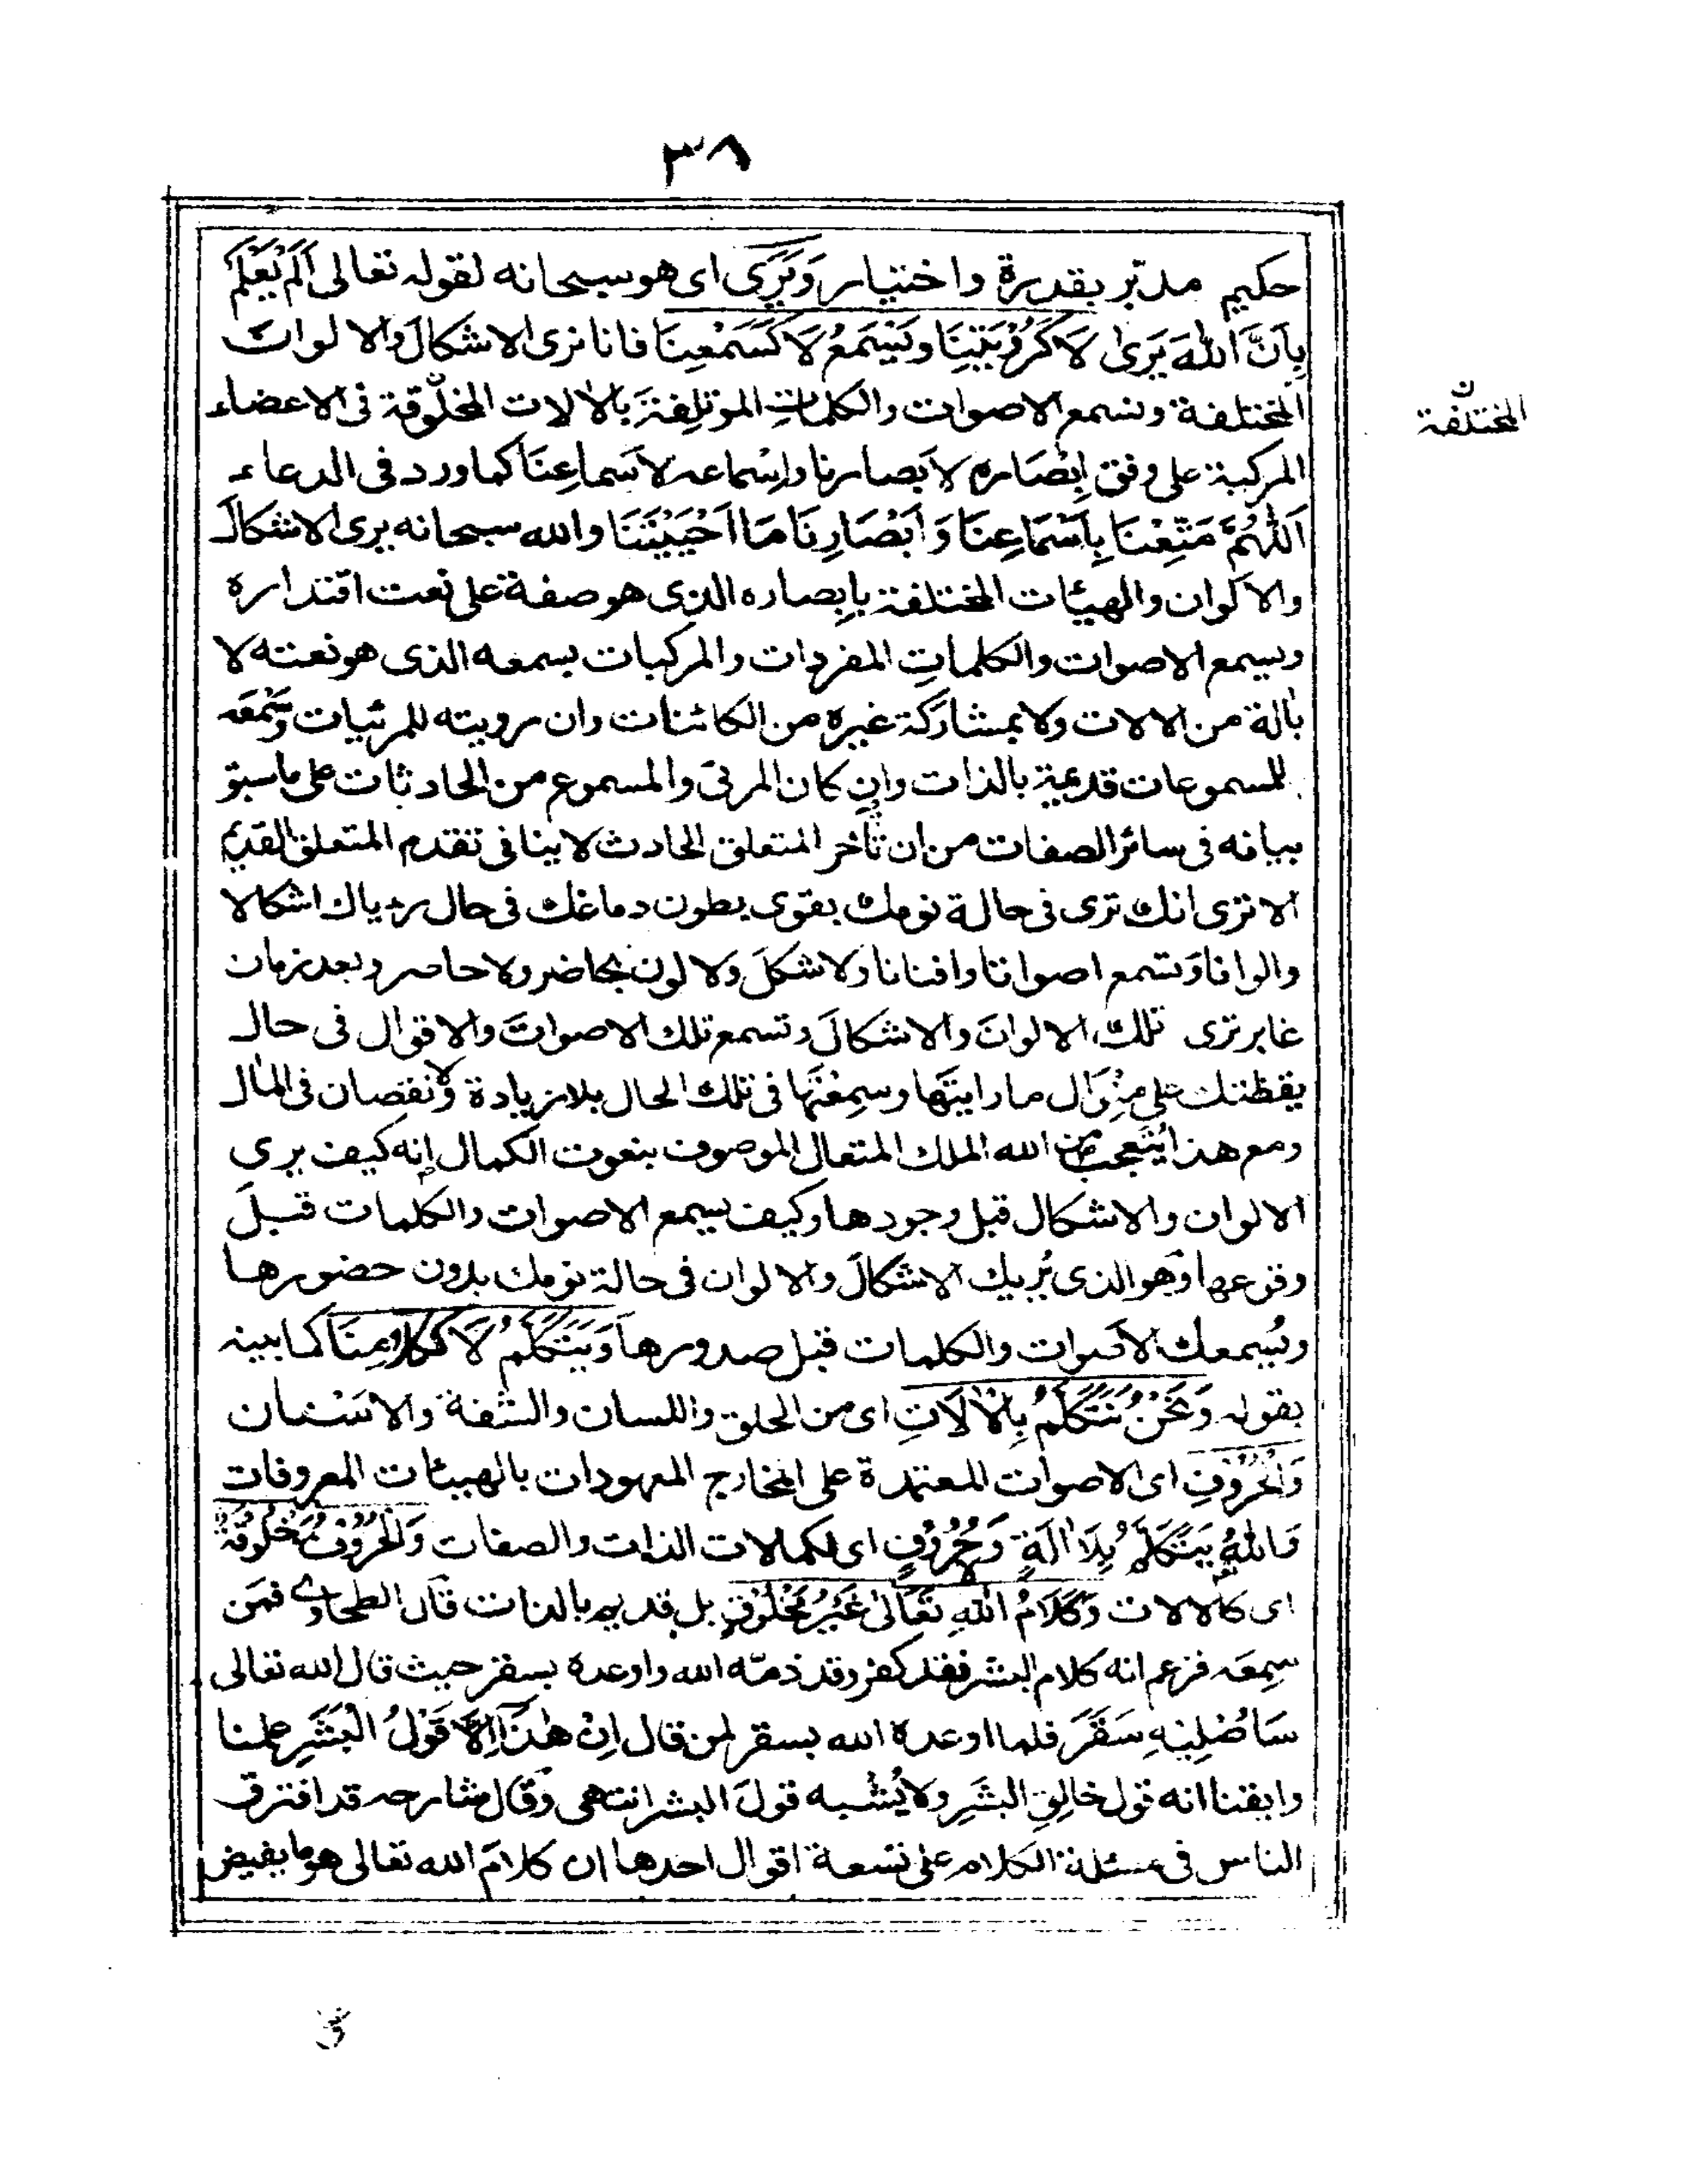 ٣٨
حكيم مدبّر بقدرة واختيار وَيَرٰى اى هو سبحانه لقوله تعالى اَلَمْ يَعْلَمْ
بِاَنَّ اللهَ يَرٰى لَا كَرُؤْيَتِنَا وَيَسْمَعُ لَا كَسَمْعِنَا فانا نرى الاشكالَ والالوان
المختلفة ونسمع الاصوات والكلمات المؤتلفة بالالات المخلوقة فى الاعضاء
المختلفة
المركبة على وفق اِبْصَاره لابصارنا واِسْماعه لاسماعِنَا كما ورد فى الدعاء
اَللّٰهُمَّ مَتِّعْنَا بِاَسْمَاعِنَا وَاَبْصَارِنَا مَا اَحْيَيْتَنَا والله سبحانه يرى الاشكال
والاكوان والهيئات المختلفة بابصاره الذى هو صفة على نعت اقتداره
ويسمع الاصوات والكلماتِ المفردات والمركبات بسمعه الذى هو نعته لا
بالة من الالات ولا بمشاركة غيره من الكائنات وان رويته للمرئيات وسَمْعَه
للمسموعات قديمة بالذات وان كان المرئىّ والمسموع من الحادثات على ما سبق
بيانه فى سائر الصفات من ان تاَخر المتعلق الحادث لا ينافى تقدم المتعلق القديم
الا ترى انك ترى فى حالة نومك بقوى بطون دماغك فى حال رؤياك اشكالا
والوانا وتسمع اصواتا وافنانا ولا شكلَ ولا لون بحاضر ولا حاصر وبعد زمان
غابر ترى تلك الالوانَ والاشكالَ وتسمع تلك الاصواتَ والاقوال فى حال
يقظتك على مِنْوَال ما رايتَها وسمِعْتَها فى تلك الحال بلا زيادة ولا نقصان فى المال
ومع هذا يُتعجب من الله الملك المتعال الموصوف بنعوت الكمال إنه كيف يرى
الالوان والاشكال قبل وجودها وكيف يسمع الاصوات والكلمات قبلَ
وقوعها وهو الذى يُريك الاشكالَ والالوان فى حالة نومك بدون حضورها
ويُسمعك الاصوات والكلمات قبل صدورها وَيَتَكَلَّمُ لَا كَكَلَامِنَا كما بينه
بقوله وَنَحْنُ نَتَكَلَّمُ بِالْاٰلَاتِ اى من الحلق واللسان والشفة والاسْنان
وَالْحُرُوْفِ اى الاصوات المعتمدة على المخارج المعهودات بالهيئات المعروفات
وَاللهُ يَتَكَلَّمُ بِلَا اٰلَةٍ وَحُرُوْفٍ اى لكمالات الذات والصفات وَالْحُرُوْفُ مَخْلُوْقَةٌ
اى كالالات وَكَلَامُ اللهِ تَعَالٰى غَيْرُ مَخْلُوْقٍ بل قديم بالذات قال الطحاوى فمَن
سمِعَه فزعم انه كلام البشر فقد كفر وقد ذمّه الله واوعده بسقر حيث قال الله تعالى
سَاُصْلِيْهِ سَقَرَ فلما اوعده الله بسقر لمن قال اِنْ هٰذَا اِلَّا قَوْلُ الْبَشَرِ علمنا
وايقنا انه قول خالقِ البشَرِ ولا يُشْبه قولَ البشر انتهى وقال شارحه قد افترق
الناس فى مسئلة الكلام على تسعة اقوال احدها ان كلامَ الله تعالى هو ما يفيض